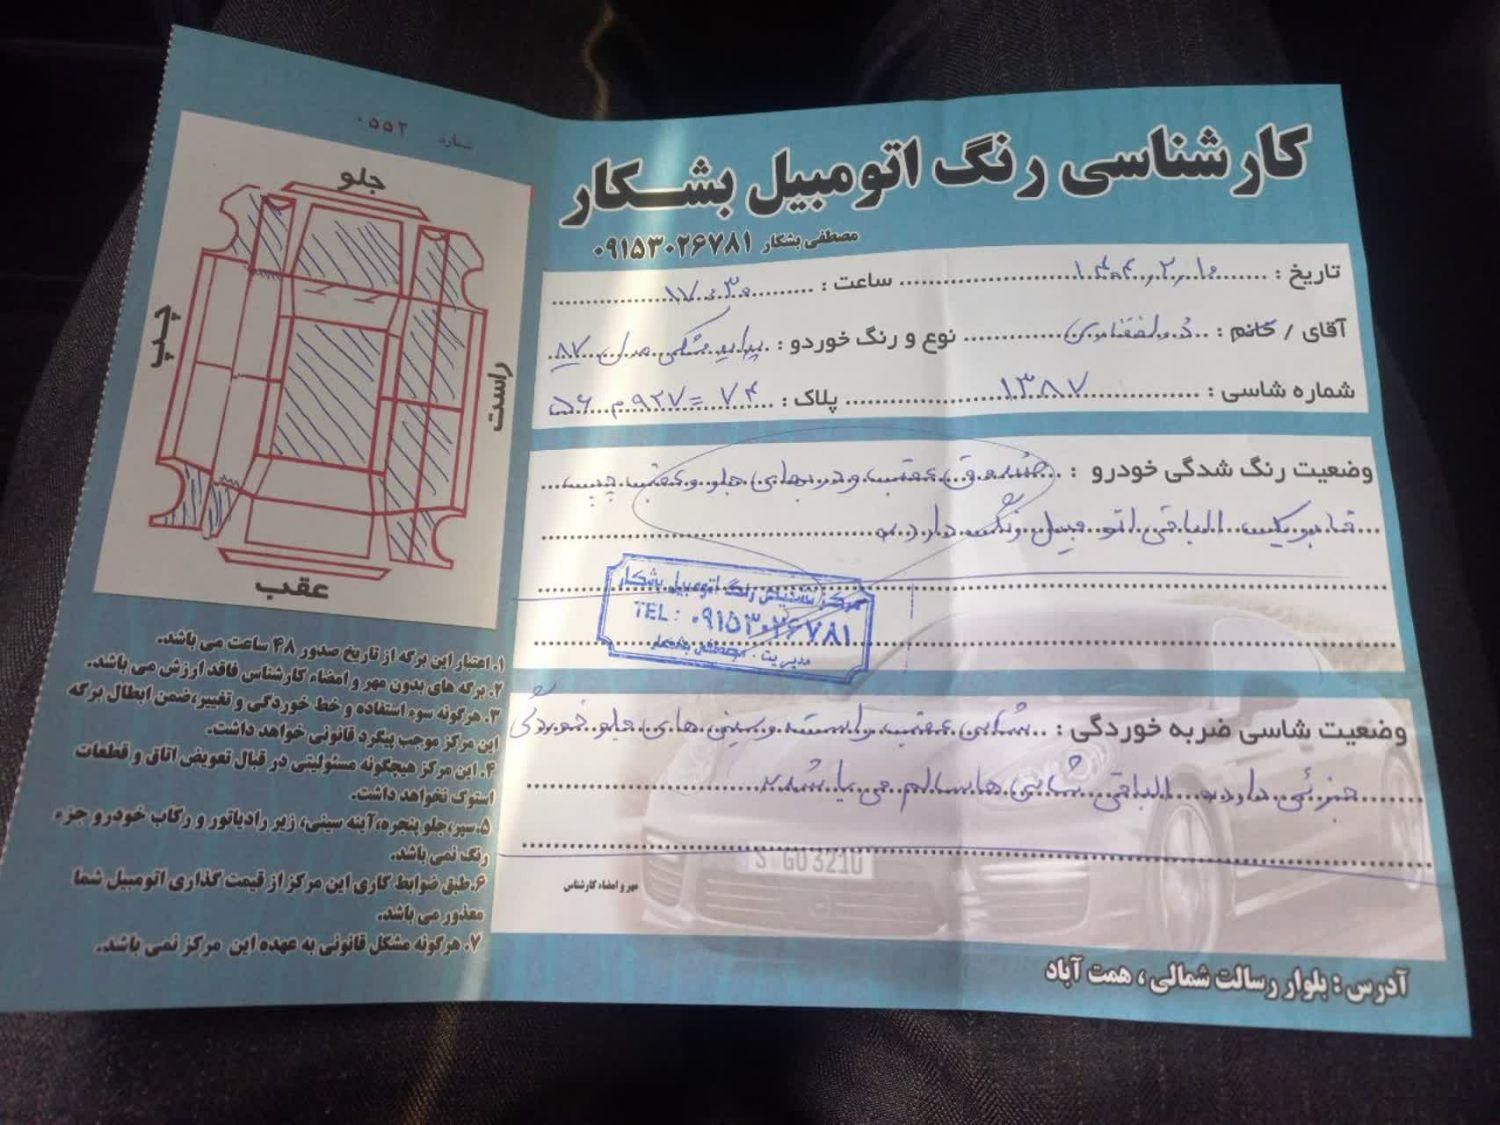 کارشناسی رنگ اتومبیل بشکار
مصطفی بشکار ۰۹۱۵۳۰۲۶۷۸۱
تاریخ : ۱۴۰۴٫۲٫۱۰ ساعت : ۱۷:۳۰
آقای / خانم : ذوالفقاری نوع و رنگ خودرو : پراید مشکی مدل ۸۷
شماره شاسی : ۱۳۸۷ پلاک : ۷۴ = ۹۲۷ م ۵۶
وضعیت رنگ شدگی خودرو : صندوق عقب و دربهای جلو و عقب چپ
فابریک الباقی اتومبیل رنگ دارد
مرکز تشخیص رنگ اتومبیل بشکار
TEL : ۰۹۱۵۳۰۲۶۷۸۱
مدیریت : مصطفی بشکار
وضعیت شاسی ضربه خوردگی : شاسی عقب راست و سینی های جلو خوردگی
جزئی دارد الباقی شاسی ها سالم می باشد
S GO 3210
مهر و امضاء کارشناس
آدرس : بلوار رسالت شمالی ، همت آباد
شماره ۰۵۵۲
جلو
چپ
راست
عقب
۱. اعتبار این برگه از تاریخ صدور ۴۸ ساعت می باشد.
۲. برگه های بدون مهر و امضاء کارشناس فاقد ارزش می باشد.
۳. هرگونه سوء استفاده و خط خوردگی و تغییر، ضمن ابطال برگه
این مرکز موجب پیگرد قانونی خواهد داشت.
۴. این مرکز هیچگونه مسئولیتی در قبال تعویض اتاق و قطعات
استوک نخواهد داشت.
۵. سپر، جلو پنجره، آینه سینی، زیر رادیاتور و رکاب خودرو جزء
رنگ نمی باشد.
۶. طبق ضوابط کاری این مرکز از قیمت گذاری اتومبیل شما
معذور می باشد.
۷. هرگونه مشکل قانونی به عهده این مرکز نمی باشد.